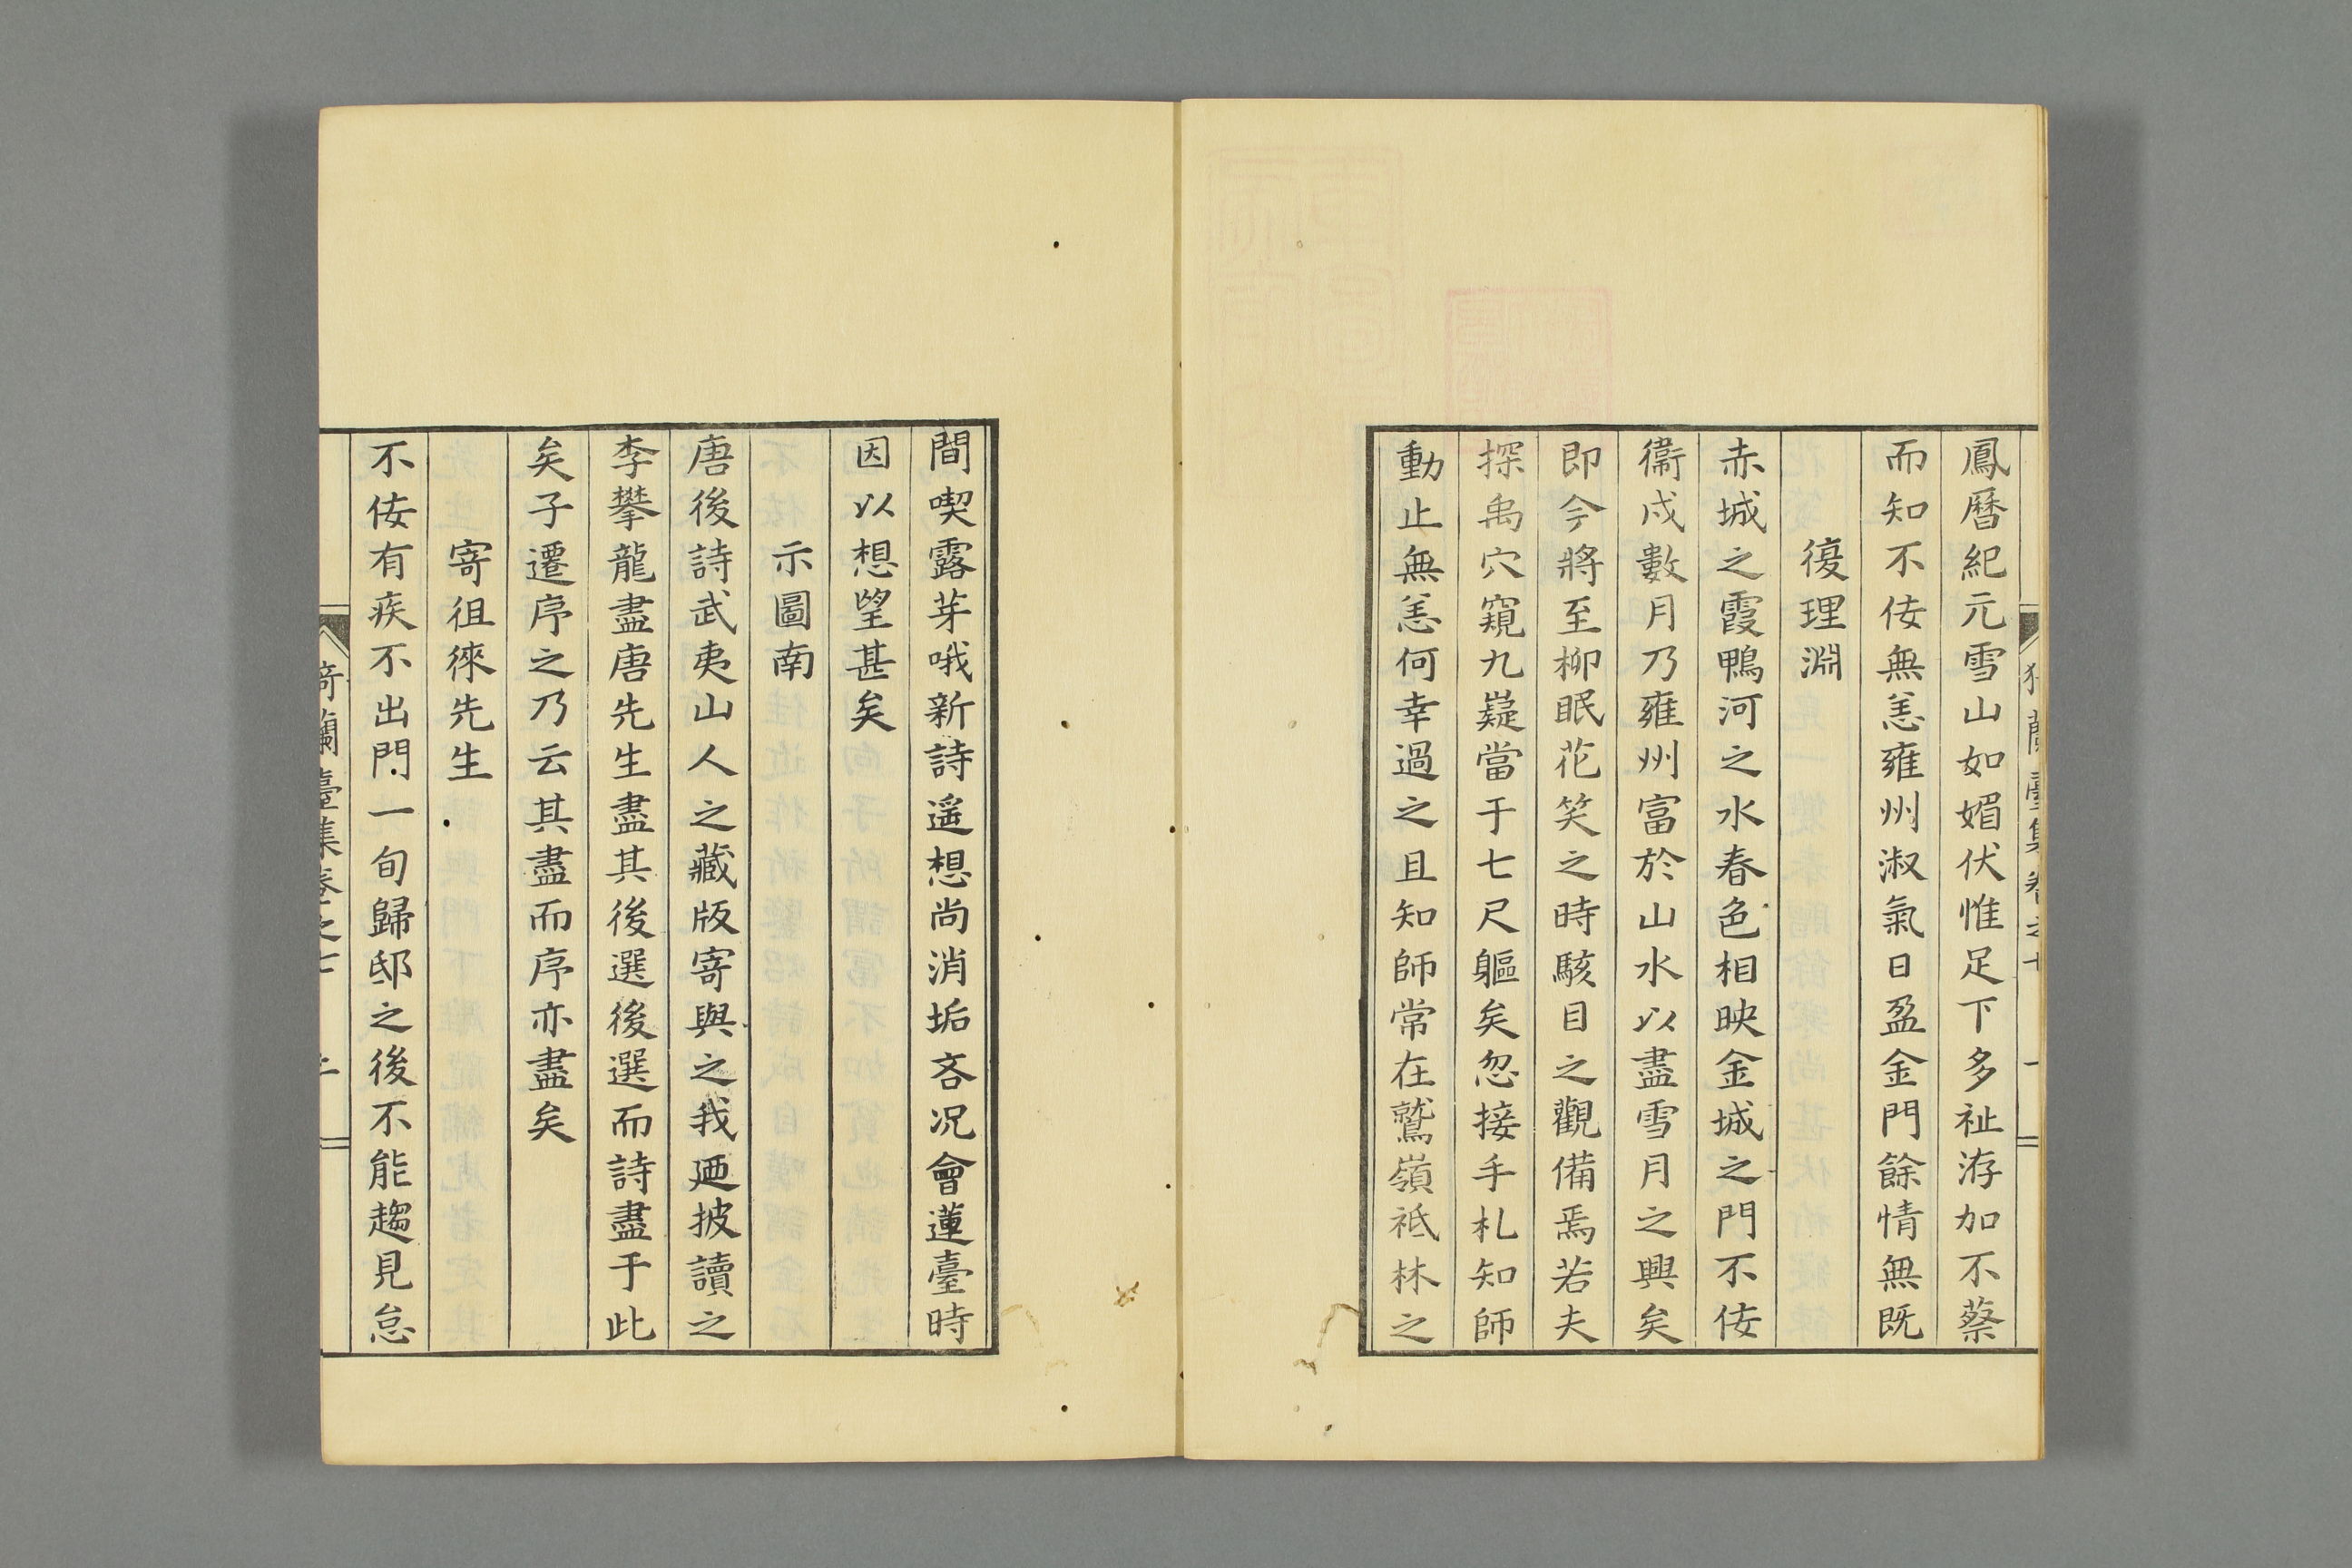 鳳暦紀元雪山如媚伏惟足下多祉洊加不蔡
而知不佞無恙雍州淑氣日盈金門餘情無既
復理淵
赤城之霞鴨河之水春色相映金城之門不佞
衞戍數月乃雍州富於山水以盡雪月之興矣
即今將至柳眠花笑之時駭目之觀備焉若夫
探禹穴窺九嶷當于七尺軀矣忽接手札知師
動止無恙何幸過之且知師常在鷲嶺祗林之
間喫露芽哦新詩遥想尚消垢吝况會蓮臺時
因以想望甚矣
示圖南
唐後詩武夷山人之藏版寄與之我廼披讀之
李攀龍盡唐先生盡其後選後選而詩盡于此
矣子遷序之乃云其盡而序亦盡矣
寄徂徠先生
不佞有疾不出門一旬歸邸之後不能趨見怠
猗蘭臺集卷之七